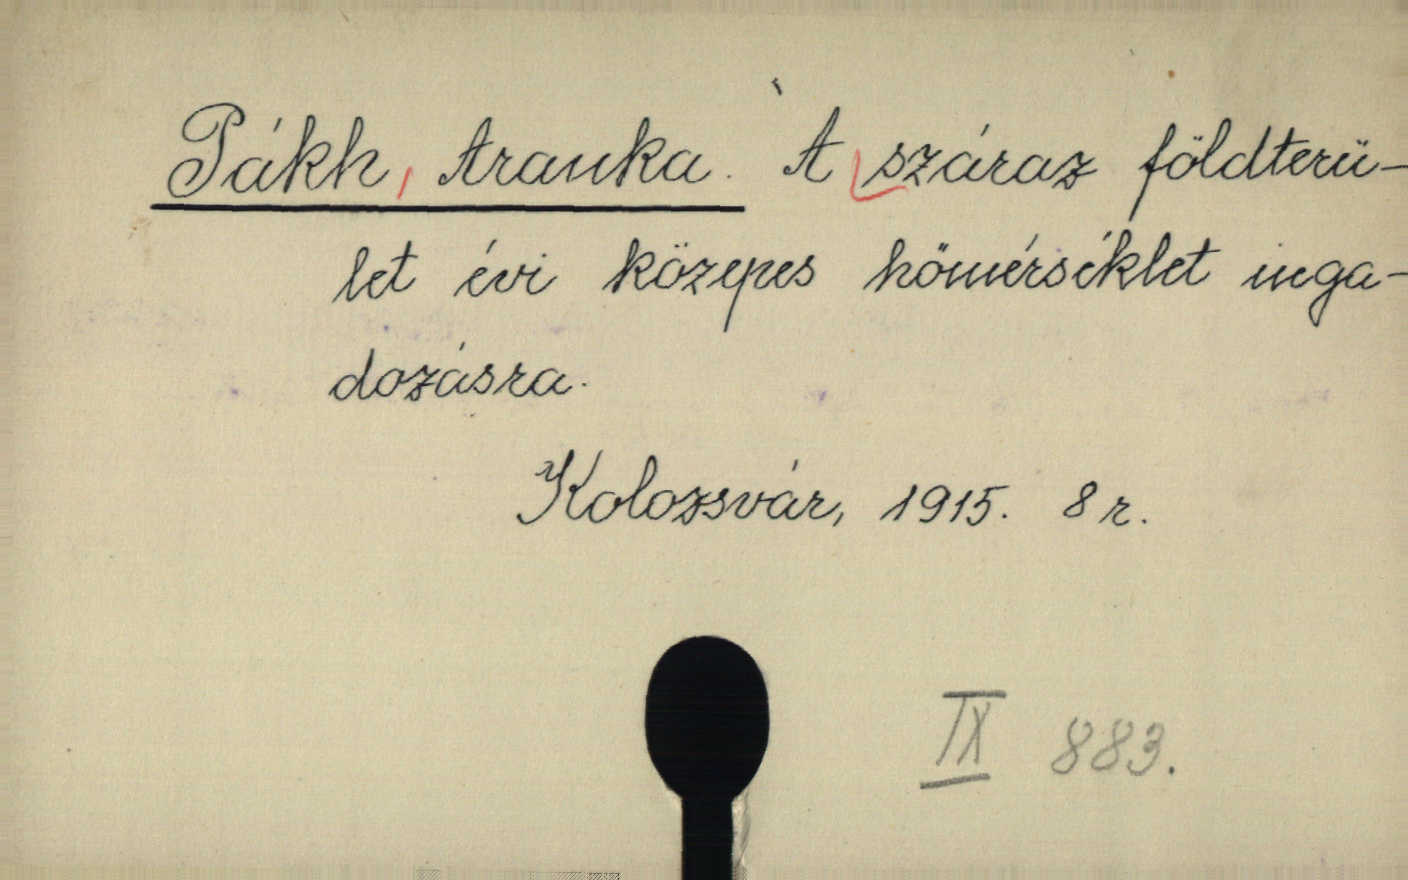 Pákh, Aranka. A száraz földterü-
let évi közepes hömérséklet inga-
dozásra.
Kolozsvár, 1915. 8 r.
IX 883.